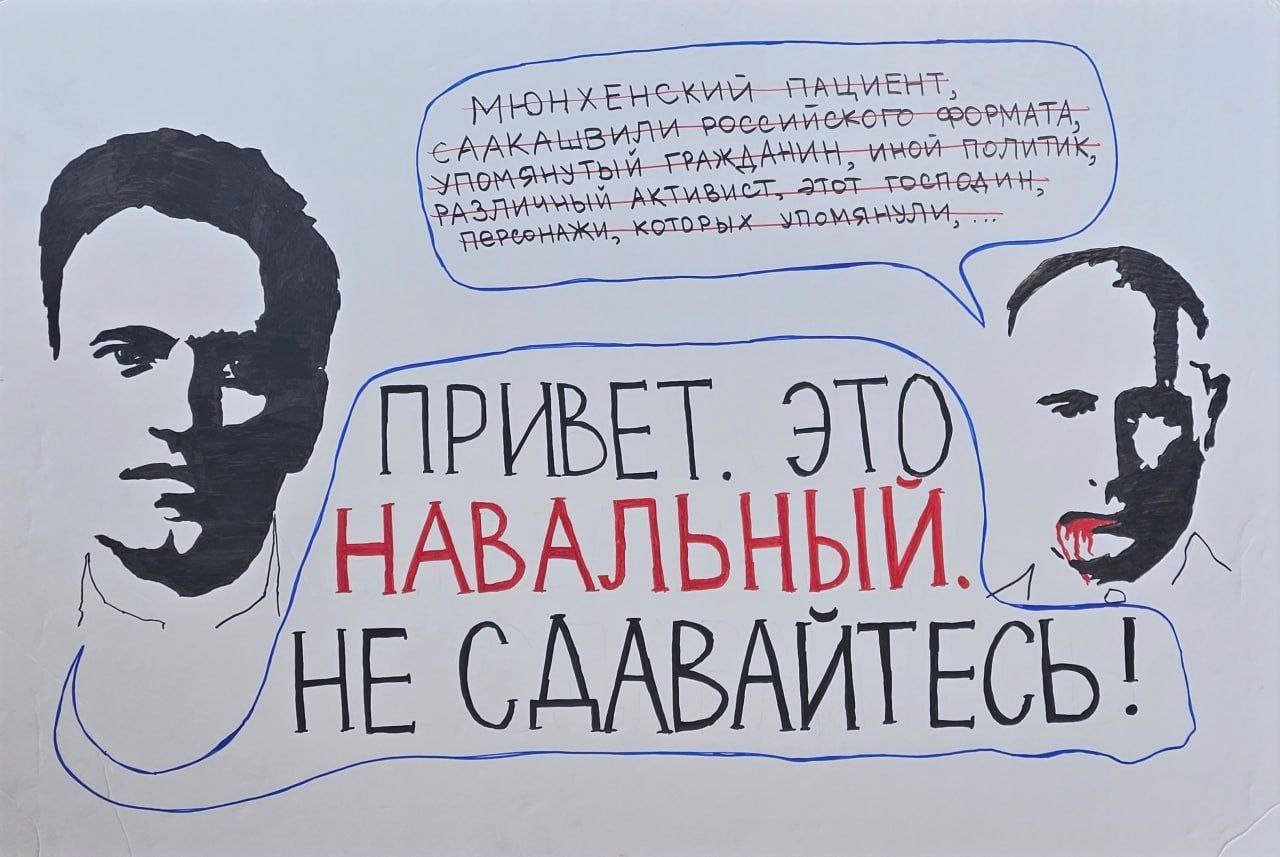 МЮНХЕНСКИЙ ПАЦИЕНТ,
СААКАШВИЛИ РОССИЙСКОГО ФОРМАТА,
УПОМЯНУТЫЙ ГРАЖДАНИН, ИНОЙ ПОЛИТИК,
РАЗЛИЧНЫЙ АКТИВИСТ, ЭТОТ ГОСПОДИН,
ПЕРСОНАЖИ, КОТОРЫХ УПОМЯНУЛИ, ...
ПРИВЕТ. ЭТО
НАВАЛЬНЫЙ.
НЕ СДАВАЙТЕСЬ!